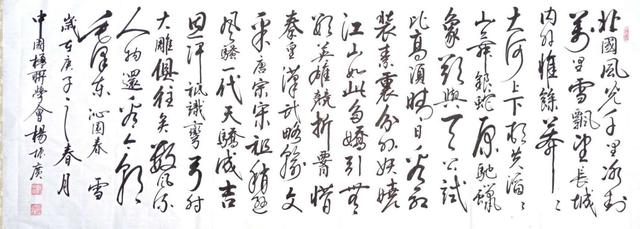 北國風光千里冰封
萬里雪飄望長城
内外惟餘莽〻
大河上下頓失滔〻
山舞銀蛇原馳蠟
象欲與天公試
比高須晴日看紅
裝素裹分外妖嬈
江山如此多嬌引無
數英雄競折腰惜
秦皇漢武略輸文
采唐宗宋祖稍遜
風騷一代天驕成吉
思汗祗識彎弓射
大雕俱往矣數風流
人物還看今朝
毛澤東 沁園春 雪
歲在庚子之春月
中國楹聯學會楊振廣